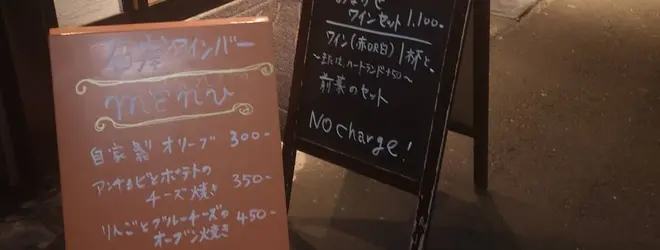 ワインバー
menu
自家製 オリーブ 300-
アンチョビとポテトの
チーズ焼き 350-
りんごとブルーチーズの
オーブン焼き 450-
ワインセット 1,100-
ワイン(赤OR白)1杯と、
〜または、ハートランド+50〜
前菜のセット
NO charge!